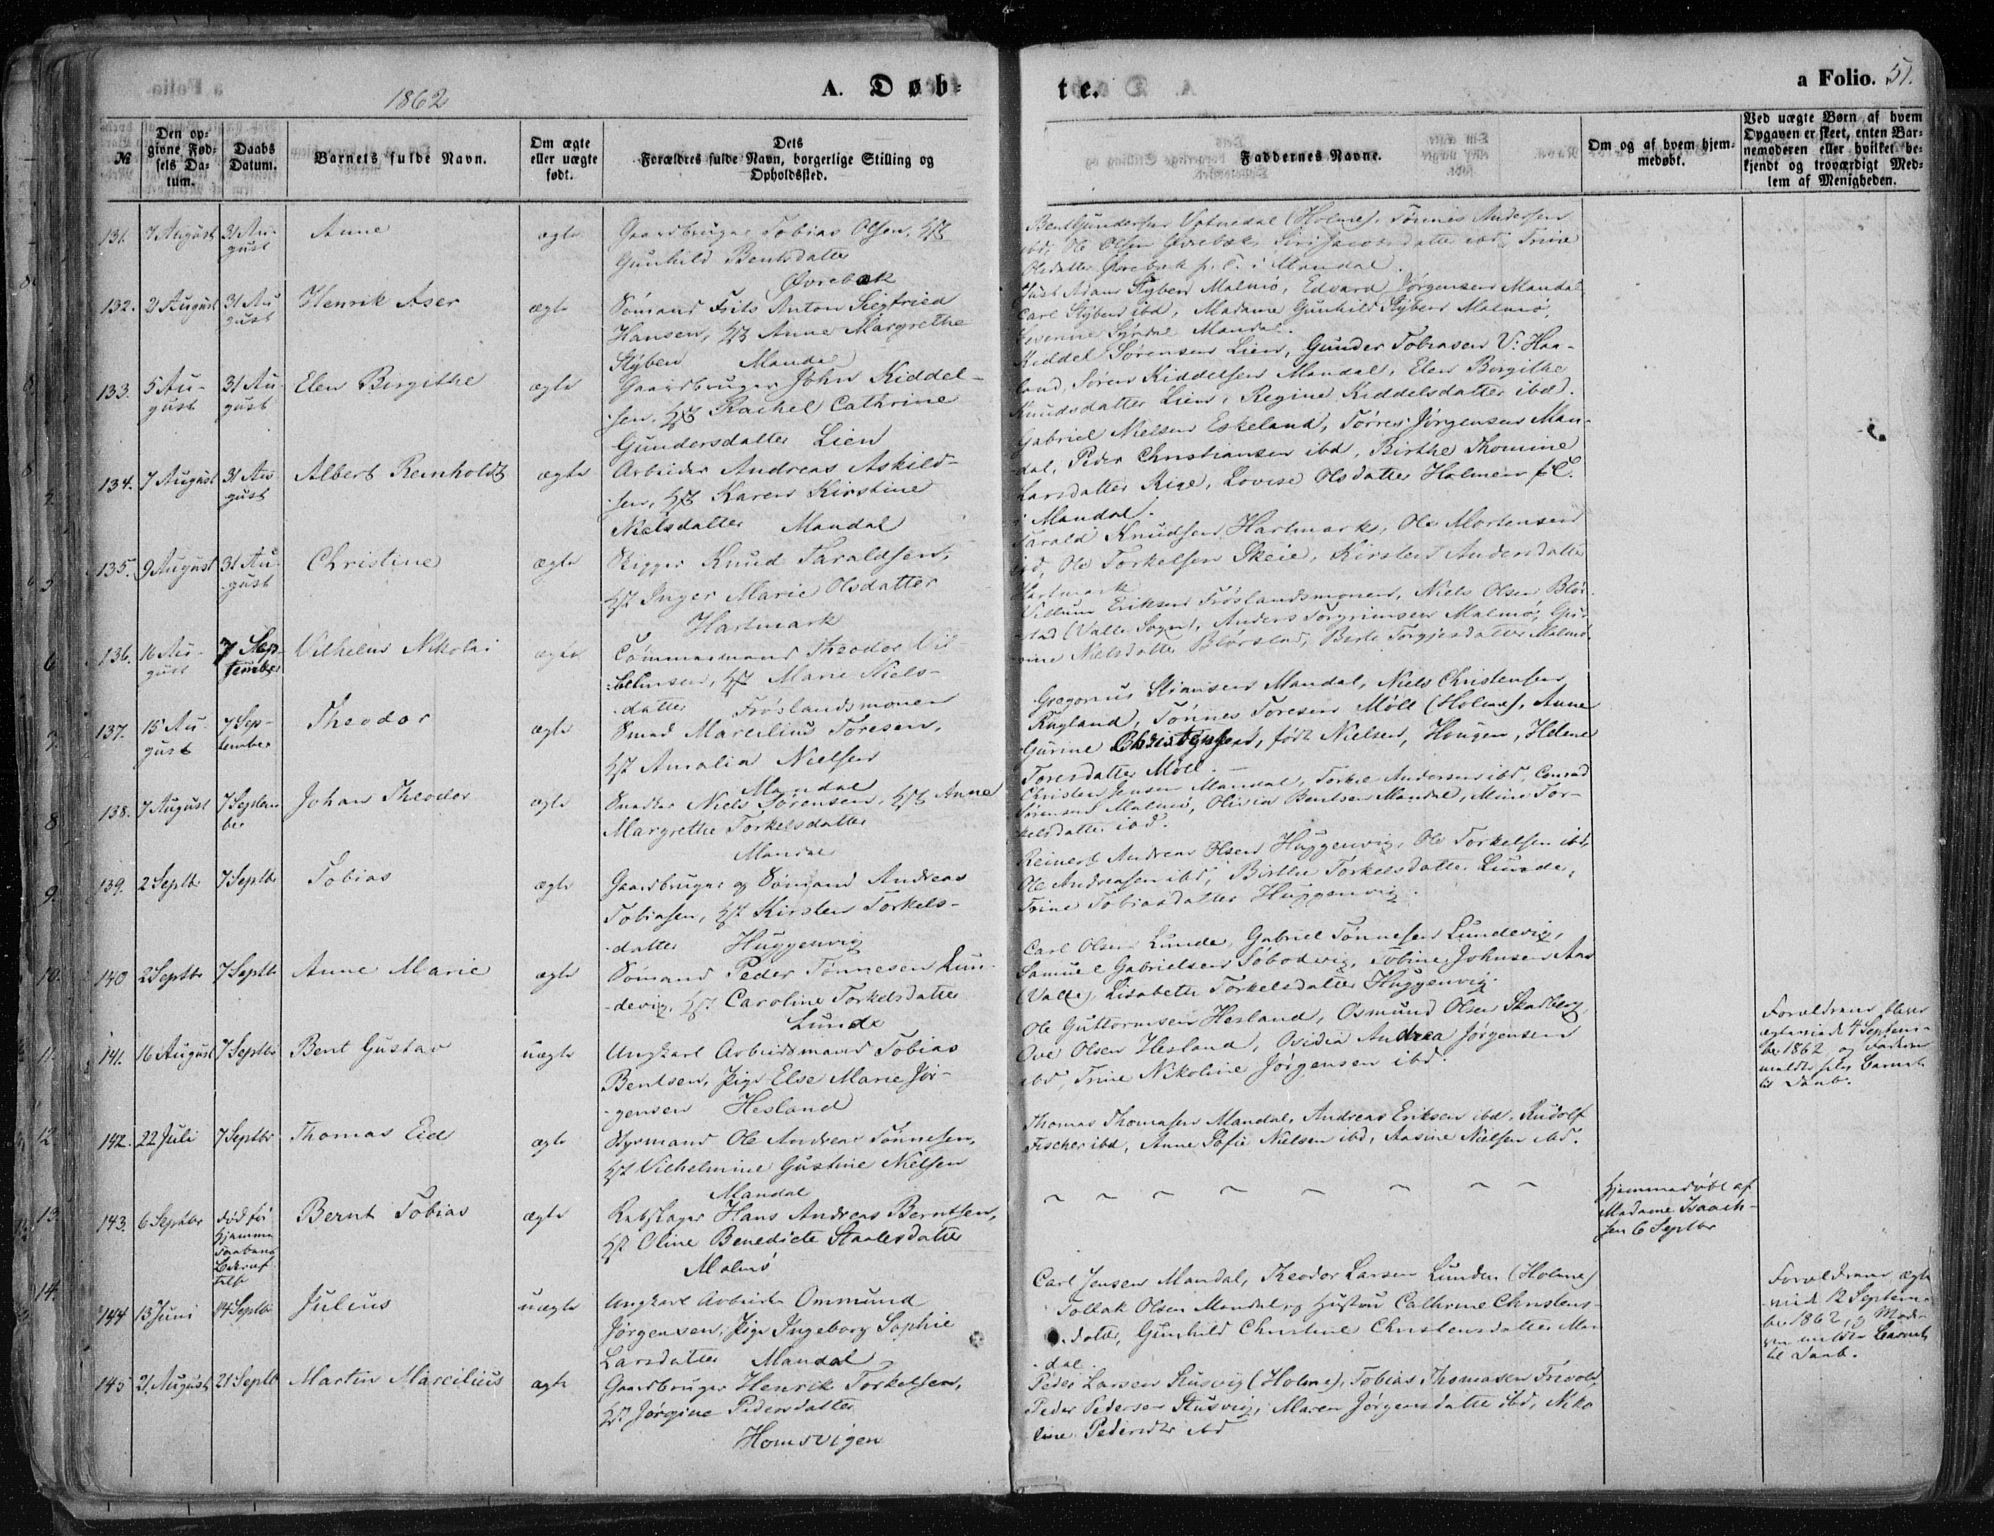 1862
A. Døb-
te.
a Folio. 51.
№
Den op-
givne Fød-
sels Da-
tum.
Daabs
Datum.
Barnets fulde Navn.
Om ægte
eller uægte
født.
Dets
Forældres fulde Navn, borgerlige Stilling og
Opholdssted.
Faddernes Navne.
Om og af hvem hjem-
medøbt.
Ved uægte Børn af hvem
Opgaven er skeet, enten Bar-
nemoderen eller hvilket be-
kjendt og troværdigt Med-
lem af Menigheden.
131. 7 August 31 Au-
gust
Anne
ægte
Gaardbruger Tobias Olsen, Hst
Gunhild Bentsdatter
Øvrebæk
Bent Gundersen (Holme), Tønnes Andersen
ibd, Ole Olsen Øvrebæk, Siri Jacobsdatter ibd, Trine
Olsdatter Øvrebæk p. t. i Mandal.
132. 21 August 31 Au-
gust
Henrik Aser
ægte
Sømand Frits Anton Siegfried
Hansen, Hst Anne Margrethe
Styben Mandal
Adam Styben Malmø, Edvard Jørgensen Mandal
Carl Styben ibd, Madame Gunhild Styben Malmø,
Mandal.
133. 5 Au-
gust
31 Au-
gust
Elen Birgithe
ægte
Gaardbruger John Kiddel-
sen, Hst Rachel Cathrine
Gundersdatter Lien
Kiddel Sørensen Lien, Gunder Tobiasen V: Haa-
land, Søren Kiddelsen Mandal, Elen Borgithe
Knudsdatter Lien, Regine Kiddelsdatter ibd.
134. 7 August 31 Au-
gust
Albert Reinholdt
ægte
Arbeider Andreas Askild-
sen, Hst Karen Kirstine
Nielsdatter Mandal
Gabriel Nielsen Eskeland, Tørres Jørgensen Man-
dal, Peder Christiansen ibd, Birthe Thomine
Larsdatter Kige, Lovise Olsdatter Holmen p. t.
i Mandal.
135. 9 August 31 Au-
gust
Christine
ægte
Bygger Knud Taraldsen,
Hst Inger Marie Olsdatter
Hartmark
Tarald Knudsen Hartmark, Ole Mortensen
ibd, Ole Torkelsen Skeie, Kirsten Andersdatter
Hartmark
136. 16 Au-
gust
7 Sep-
tember
Vilhelm Nikolai
ægte
Tømmermand Theodor Vil-
helmsen, Hst Marie Niels-
datter Frøslandsmonen
Villum Eriksen Frøslandsmonen, Niels Olsen Blør-
stad (Valle Sogn), Anders Torgrimsen Malmø, Gu-
rine Nielsdatter Blørstad, Berte Torgjersdatter Malmø.
137. 15 Au-
gust
7 Sep-
tember
Theodor
ægte
Smed Marcilius Toresen,
Hst Amalia Nielsen
Mandal
Gregorius Stiansen Mandal, Niels Christensen
Fugland, Tønnes Toresen Møll (Holme), Anne
Gurine Christensen, født Nielsen, Hougen, Helene
Toresdatter Møll.
138. 7 August 7 Septem-
ber
Johan Theodor
ægte
Snedker Niels Sørensen, Hst Anne
Margrethe Torkelsdatter
Mandal
Christen Jensen Mandal, Torkel Andersen ibd, Conrad
Sørensen Malmø, Olivia Bentsen Mandal, Mine Tor-
kelsdatter ibd.
139. 2 Septbr 7 Septbr
Tobias
ægte
Gaardbruger og Sømand Andreas
Tobiasen, Hst Kirsten Torkels-
datter Huggenvig
Reinert Andreas Olsen Huggenvig, Ole Torkelsen ibd,
Ole Andreasen ibd, Birthe Torkelsdatter Lunde,
Trine Tobiasdatter Huggenvig.
140 2 Septbr 7 Septbr
Anne Marie
ægte
Sømand Peder Tønnesen Lun-
devig, Hst. Caroline Torkelsdatter
Lunde
Carl Olsen Lunde, Gabriel Tønnesen Lundevig,
Samuel Gabrielsen Søbodvig, Tobine Johnsen Aas
(Valle), Lisabeth Torkelsdatter Huggenvig.
141. 16 August 7 Septbr
Bent Gustav
uægte
Ungkarl Arbeidsmand Tobias
Bentsen, Pige Else Marie Jør-
gensen Hesland
Ole Guttormsen Hesland, Osmund Olsen Skadberg,
Ove Olsen Hesland, Ovidia Andrea Jørgensen
ibd, Trine Nikoline Jørgensen ibd.
Forældrene bleve
ægteviede 4 Septem-
ber 1862 og Faderen
meldte selv Barnet
til Daab.
142. 22 Juli 7 Septbr
Thomas Eid
ægte
Styrmand Ole Andreas Tønnesen,
Hst Vilhelmine Gustine Nielsen
Mandal
Thomas Thomasen Mandal, Andreas Eriksen ibd, Rudolf
Fischer ibd, Anne Sofie Nielsen ibd, Aasine Nielsen ibd.
143. 6 Septbr død før
Hjemme
daabens
Bekræf-
telse
Bernt Tobias
ægte
Rebslager Hans Andreas Berntsen,
Hst Oline Benedicte Staalesdatter
Malmø
Hjemmedøbt af
Madame Isaach-
sen 6 Septbr
144 13 Juni 14 Septbr
Julius
uægte
Ungkarl Arbeider Ommund
Jørgensen, Pige Ingeborg Sophie
Larsdatter Mandal
Carl Jensen Mandal, Theodor Larsen Lunden (Holme)
Tollak Olsen Mandal og Hustru Cathrine Christens-
datter, Gunhild Christine Christensdatter Man-
dal.
Forældrene ægte
viede 12 Septem-
ber 1862, og Mode-
ren meldte Barnet
til Daab.
145 21 August 21 Septb
Martin Marcilius
ægte
Gaardbruger Henrik Torkelsen,
Hst Jørgine Pedersdatter
Homsvigen
Peder Larsen Stusvig (Holme), Tobias Thomasen Trivold,
Peder Pedersen Stusvig, Maren Jørgensdatter ibd, Niko-
line Pedersdtr ibd